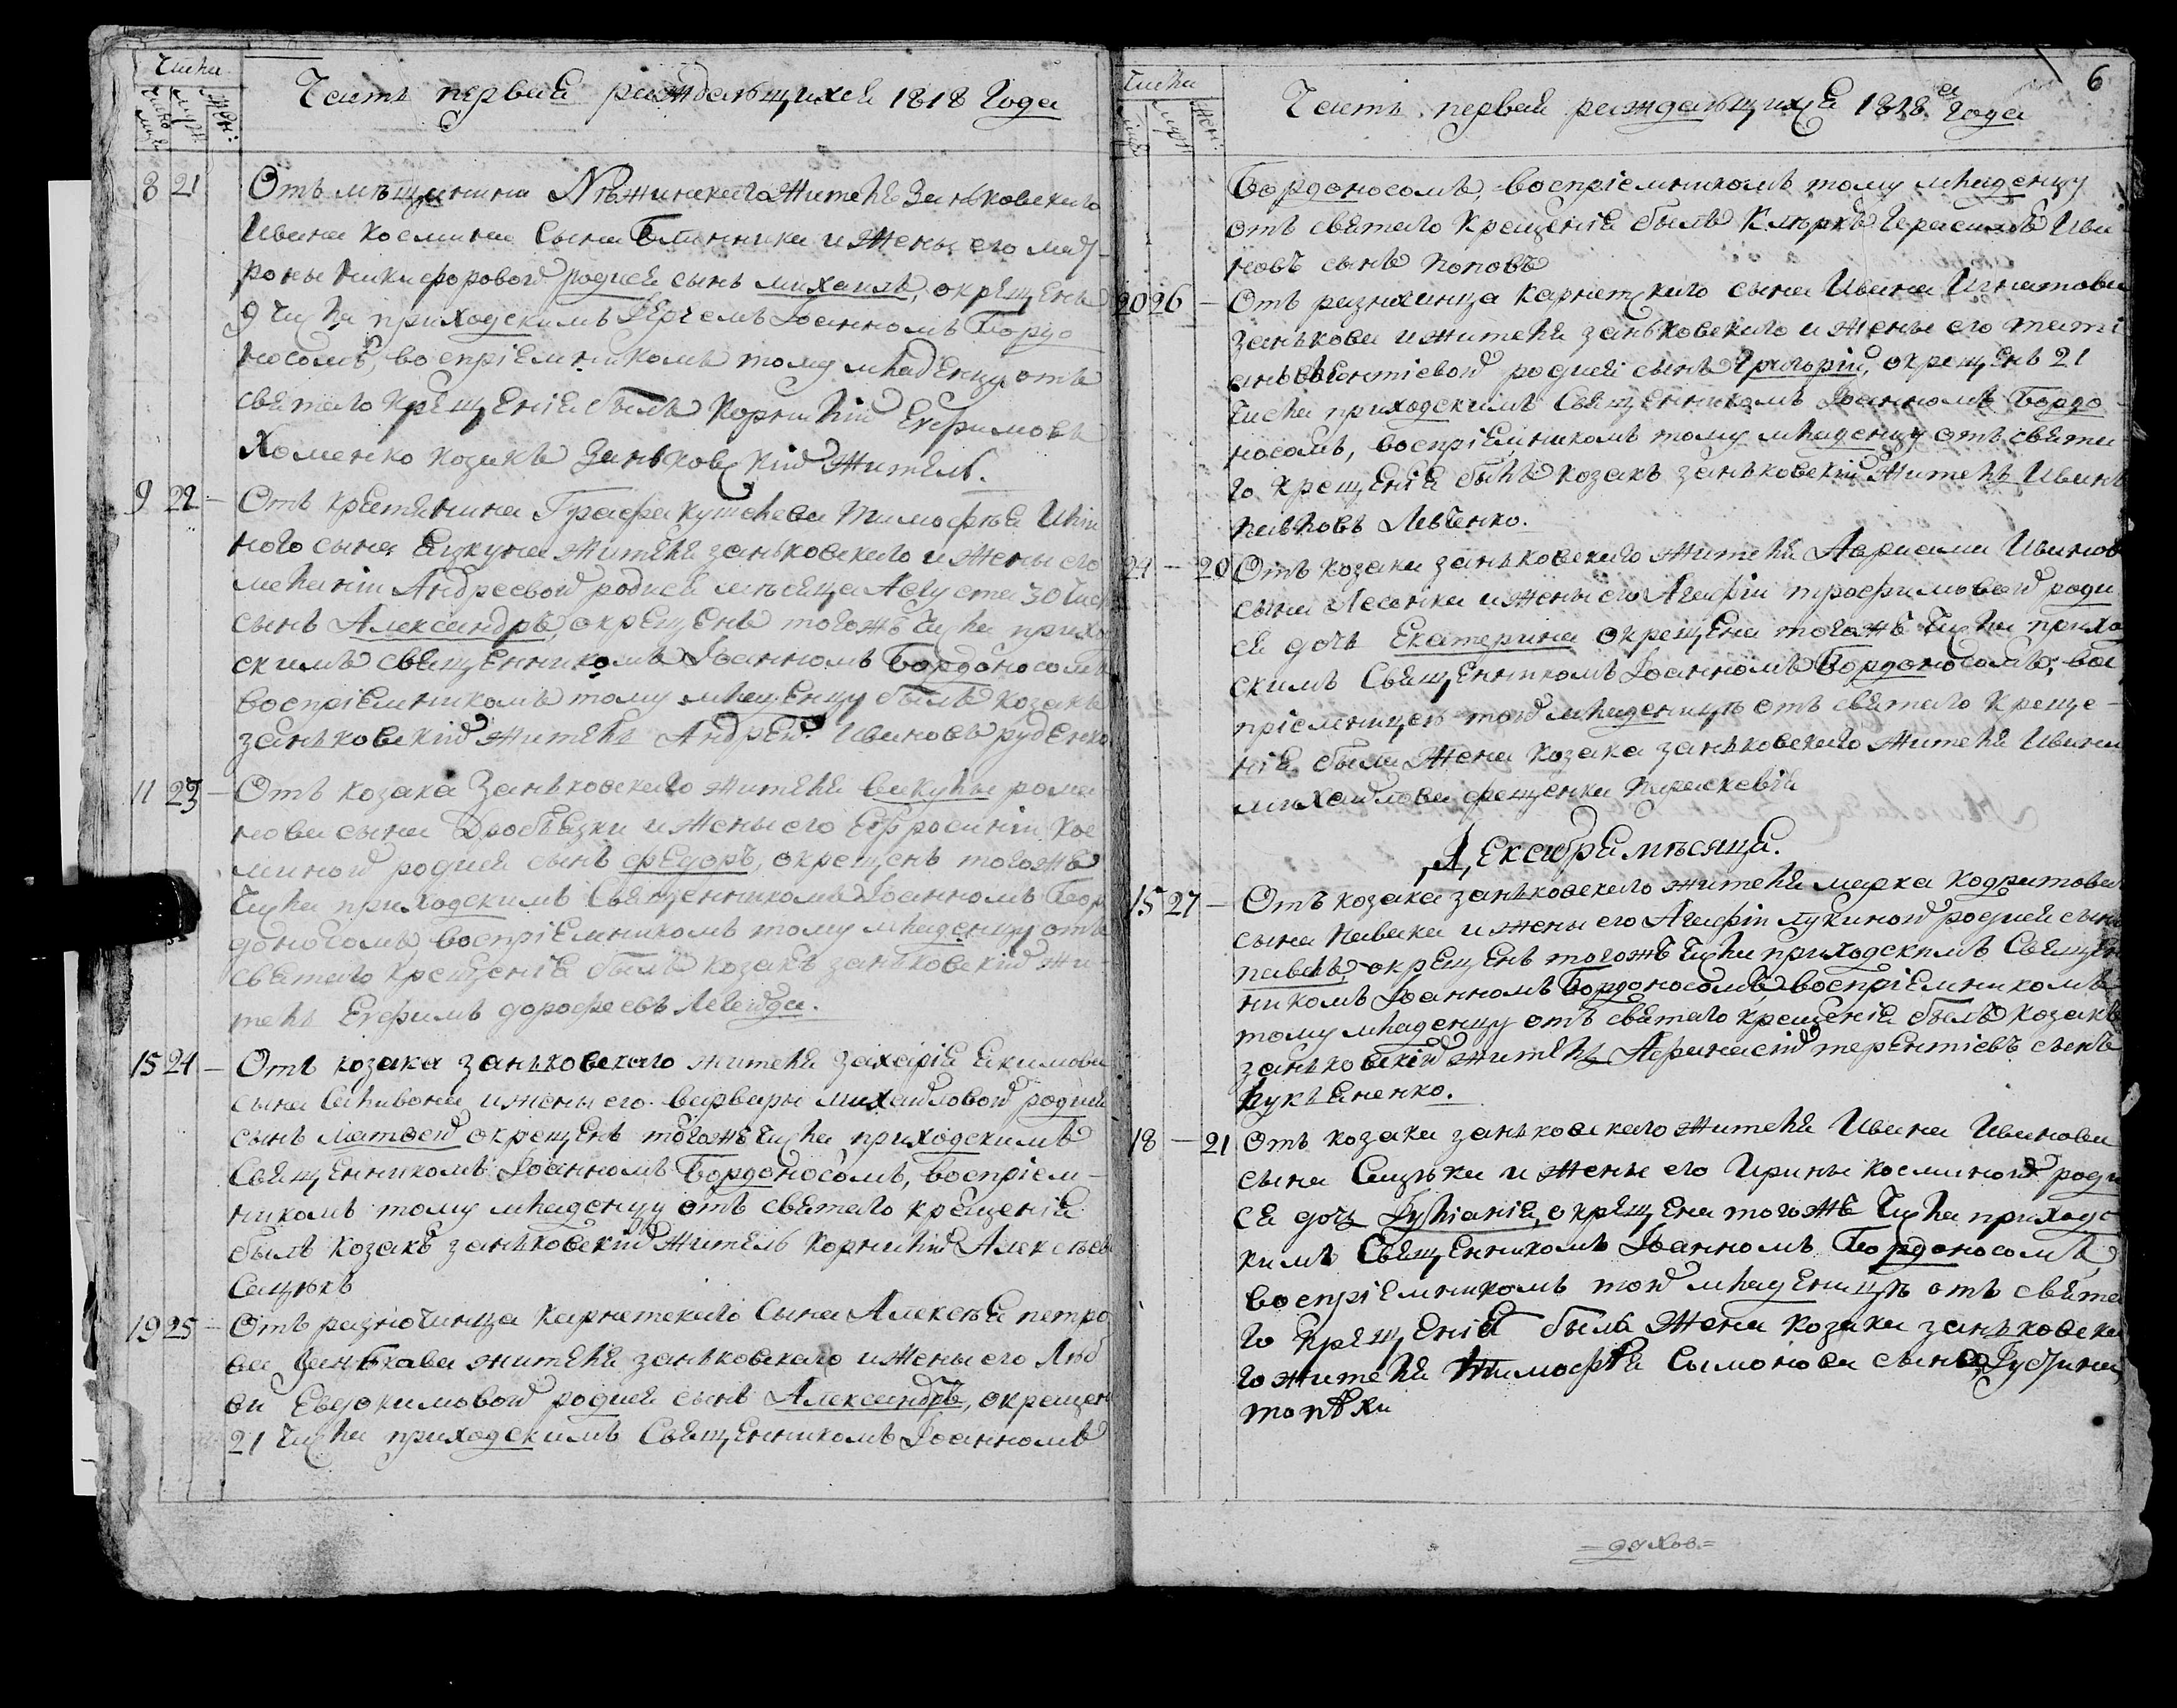 Числа
мужс:
Жен:
Часть первая раждающихся 1818 Года
8 21
Отъ мѣщанина Нѣжинскаго Жителя Заньковскаго
Ивана Космина Сына Блинника и Жены его мат
роны Никифоровой родися сынъ михаилъ, окрещенъ
9 числа приходскимъ Іереемъ Іоанномъ Бордо
носомъ, воспріемникомъ тому младенцу отъ
святаго Крещенія былъ Корнилій Ефимовъ
Хоменко козакъ Заньковскій Житель.
9 22 -
Отъ крестянина Графа кушелева Тимофѣя Иліи
ного сына Бицкуна жителя заньковскаго и жены его
меланіи Андреевой родися мѣсяца Августа 30 числ
сынъ Александръ, окрещенъ тогожъ числа прихо
скимъ священникомъ Іоанномъ Бордоносомъ
воспріемникомъ тому младенцу былъ козакъ
заньковскій житель Андрей Ивановъ руденко
11 23 -
Отъ козака Заньковскаго жителя вакулы рома
нова сына Дробязки и жены его Ефросиніи Кос
миной родися сынъ федоръ, окрещенъ тогожъ
числа приходскимъ Священникомъ Іоанномъ Бор
доносомъ воспріемникомъ тому младенцу отъ
святаго крещенія былъ козакъ заньковскій жи-
тель Ефимъ дорофеевъ Легейда.
15 24 -
Отъ козака заньковскаго жителя захарія Екимова
сына Саливона и жены его варвары михайловой родися
сынъ матвей окрещенъ тогожъ числа приходскимъ
Священникомъ Іоанномъ Бордоносомъ, воспріем-
никомъ тому младенцу отъ святаго крещенія
былъ козакъ заньковскій житель корнилій Алексѣевъ
Сацюкъ
19 25 -
Отъ разночинца Карнетскаго Сына Алексѣя петро
ва Занькова жителя заньковскаго и жены его Люб
ви Евдокимовой родися сынъ Александръ, окрещен
21 числа приходскимъ Священникомъ Іоанномъ
6
Числа
мужс
Жен:
Часть первая раждающихся 1818 Года
Бордоносомъ, воспріемникомъ тому младенцу
отъ святаго Крещенія былъ Клюркъ Герасимъ Ива
новъ сынъ поповъ
20 26 -
Отъ разночинца карнетскаго сына Ивана Игнатова
Занькова и жителя заньковскаго и жены его тати
аны Леонтіевой родися сынъ Григорій, окрещенъ 21
числа приходскимъ Священникомъ Іоанномъ Бордо
носомъ, воспріемникомъ тому младенцу отъ свята
го крещенія былъ козакъ заньковскій Житель Иванъ
павловъ Левченко.
24 - 20
Отъ козака заньковскаго жителя Аврама Иванов
сына Лесенка и жены его Агафіи трофимовой роди
ся дочь Екатерина окрещена тогожъ числа прихо
скимъ Священникомъ Іоанномъ Бордоносомъ, вос
пріемницею той младеницѣ отъ святаго Креще-
нія была Жена козака заньковскаго жителя Ивана
михайлова фещенка параскевія
Декабря мѣсяца.
15 27 -
Отъ козака заньковскаго жителя марка Кодратова
сына павака и жены его Агафіи лукиной родися сынъ
павелъ, окрещенъ тогожъ числа приходскимъ Священ
никомъ Іоанномъ Бордоносомъ, воспріемникомъ
тому младенцу отъ святаго крещенія былъ козакъ
заньковскій житель Афанасій терентіевъ сынъ
Лукьяненко.
18 - 21
Отъ козака заньковскаго жителя Ивана Иванова
сына Сацюка и жены его Ирины космины роди
ся дочь Іуліанія, окрещена тогожъ числа приходс
кимъ Священникомъ Іоанномъ Бордоносомъ
воспріемникомъ той младеницѣ отъ свята
го крещенія была Жена козака заньковска
го жителя Тимофѣя Симонова сына Іустина